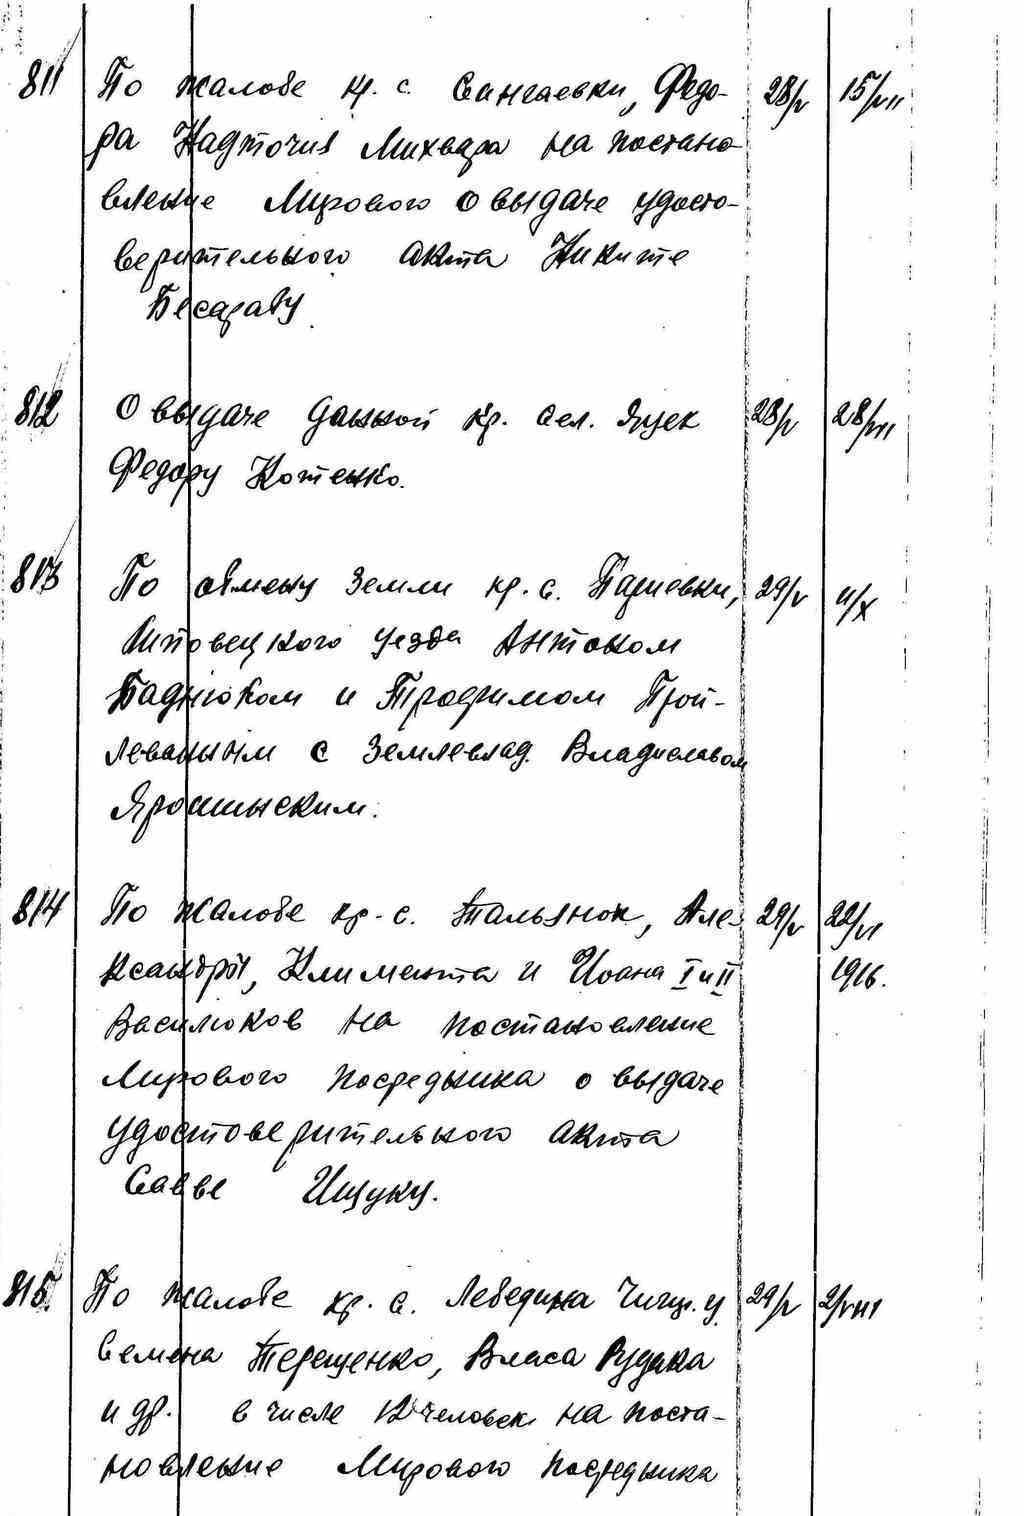 811 По жалобе кр. с. Сингаевки, Федо- 28/V 15/VII
ра Надточия Михвера на постано-
вление Мирового о выдаче удосто-
верительного акта Никите
Бесарабу
812 О выдаче данной кр. сел. Яцек 28/V 28/VII
Федору Котенко.
813 По обмену земли кр. с. Париевки, 29/V 4/X
Липовецкого уезда Антоном
Баднюком и Трофимом Трой-
леваным с землевлад. Владиславом
Ярошинским.
814 По жалобе кр. с. Тальянок, Але- 29/V 22/VI
ксандры, Климента и Иоана I и II 1916.
Василюков на постановление
Мирового посредника о выдаче
удостоверительного акта
Савве Ищуку.
815. По жалобе кр. с. Лебедина Чигир. у. 29/V 2/VIII
Семена Терещенко, Власа Рудака
и др. в числе 12 человек на поста-
новление Мирового посредника